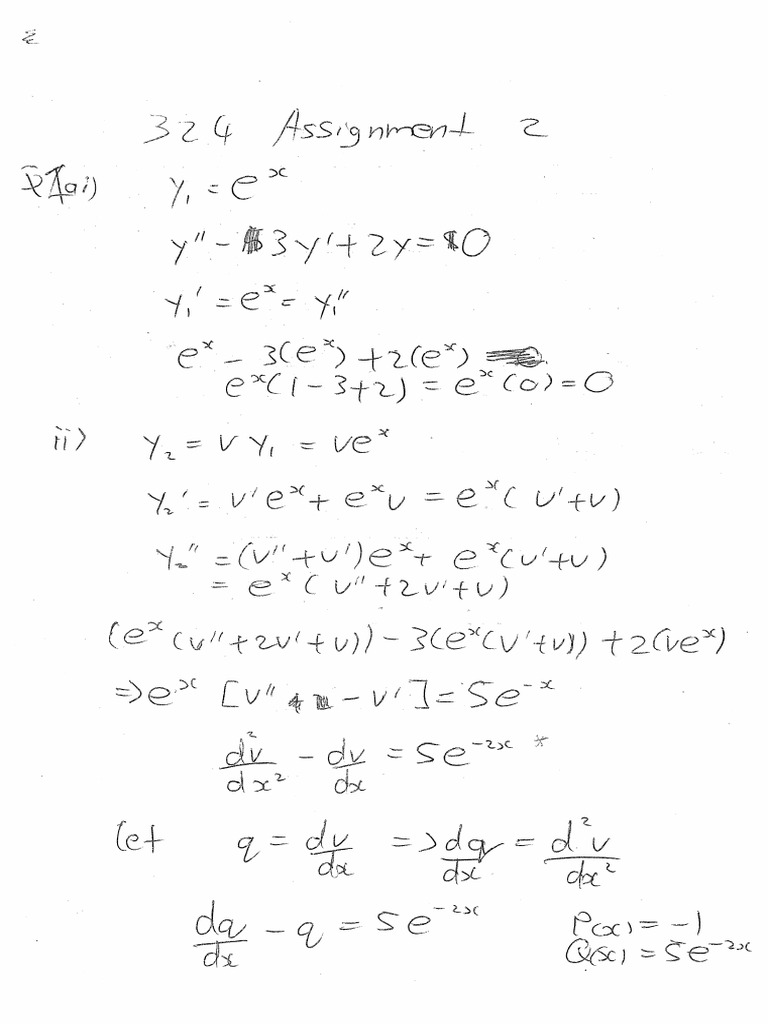 324 Assignment 2
1ai) y₁ = eˣ
y'' - 3y' + 2y = 0
y₁' = eˣ = y₁''
eˣ - 3(eˣ) + 2(eˣ)
eˣ(1 - 3 + 2) = eˣ(0) = 0
ii) y₂ = v y₁ = veˣ
y₂' = v'eˣ + eˣv = eˣ(v' + v)
y₂'' = (v'' + v')eˣ + eˣ(v' + v)
= eˣ(v'' + 2v' + v)
(eˣ(v'' + 2v' + v)) - 3(eˣ(v' + v)) + 2(veˣ)
=> eˣ [v'' - v'] = 5e⁻ˣ
d²v/dx² - dv/dx = 5e⁻²ˣ *
let q = dv/dx => dq/dx = d²v/dx²
dq/dx - q = 5e⁻²ˣ P(x) = -1
Q(x) = 5e⁻²ˣ